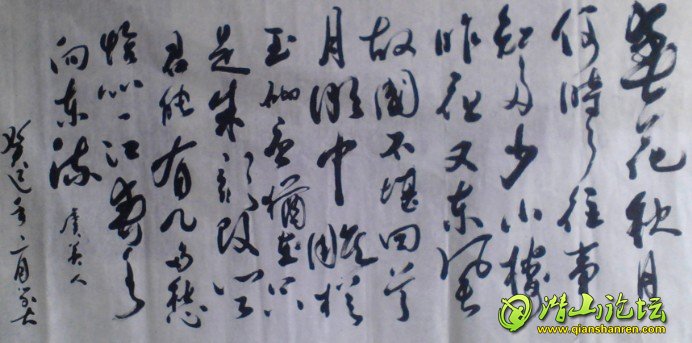 春花秋月
何時了往事
知多少小楼
昨夜又东風
故國不堪回首
月明中雕栏
玉砌应猶在只
是朱颜改问
君能有几多愁
恰似一江春水
向东流
虞美人
癸巳年二月
潜山论坛
www.qianshanren.com